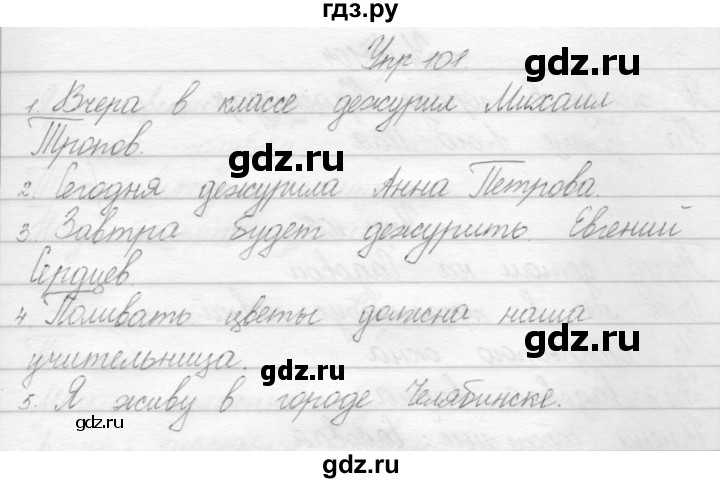 гдз.ру
Упр 101
gdz.ru
1. Вчера в классе дежурил Михаил
Тропов.
gdz.ru
2. Сегодня дежурила Анна Петрова.
3. Завтра будет дежурить Евгений
Сердцев.
4. Поливать цветы должна наша
учительница.
gdz.ru
5. Я живу в городе Челябинске.
gdz.ru
gdz.ru